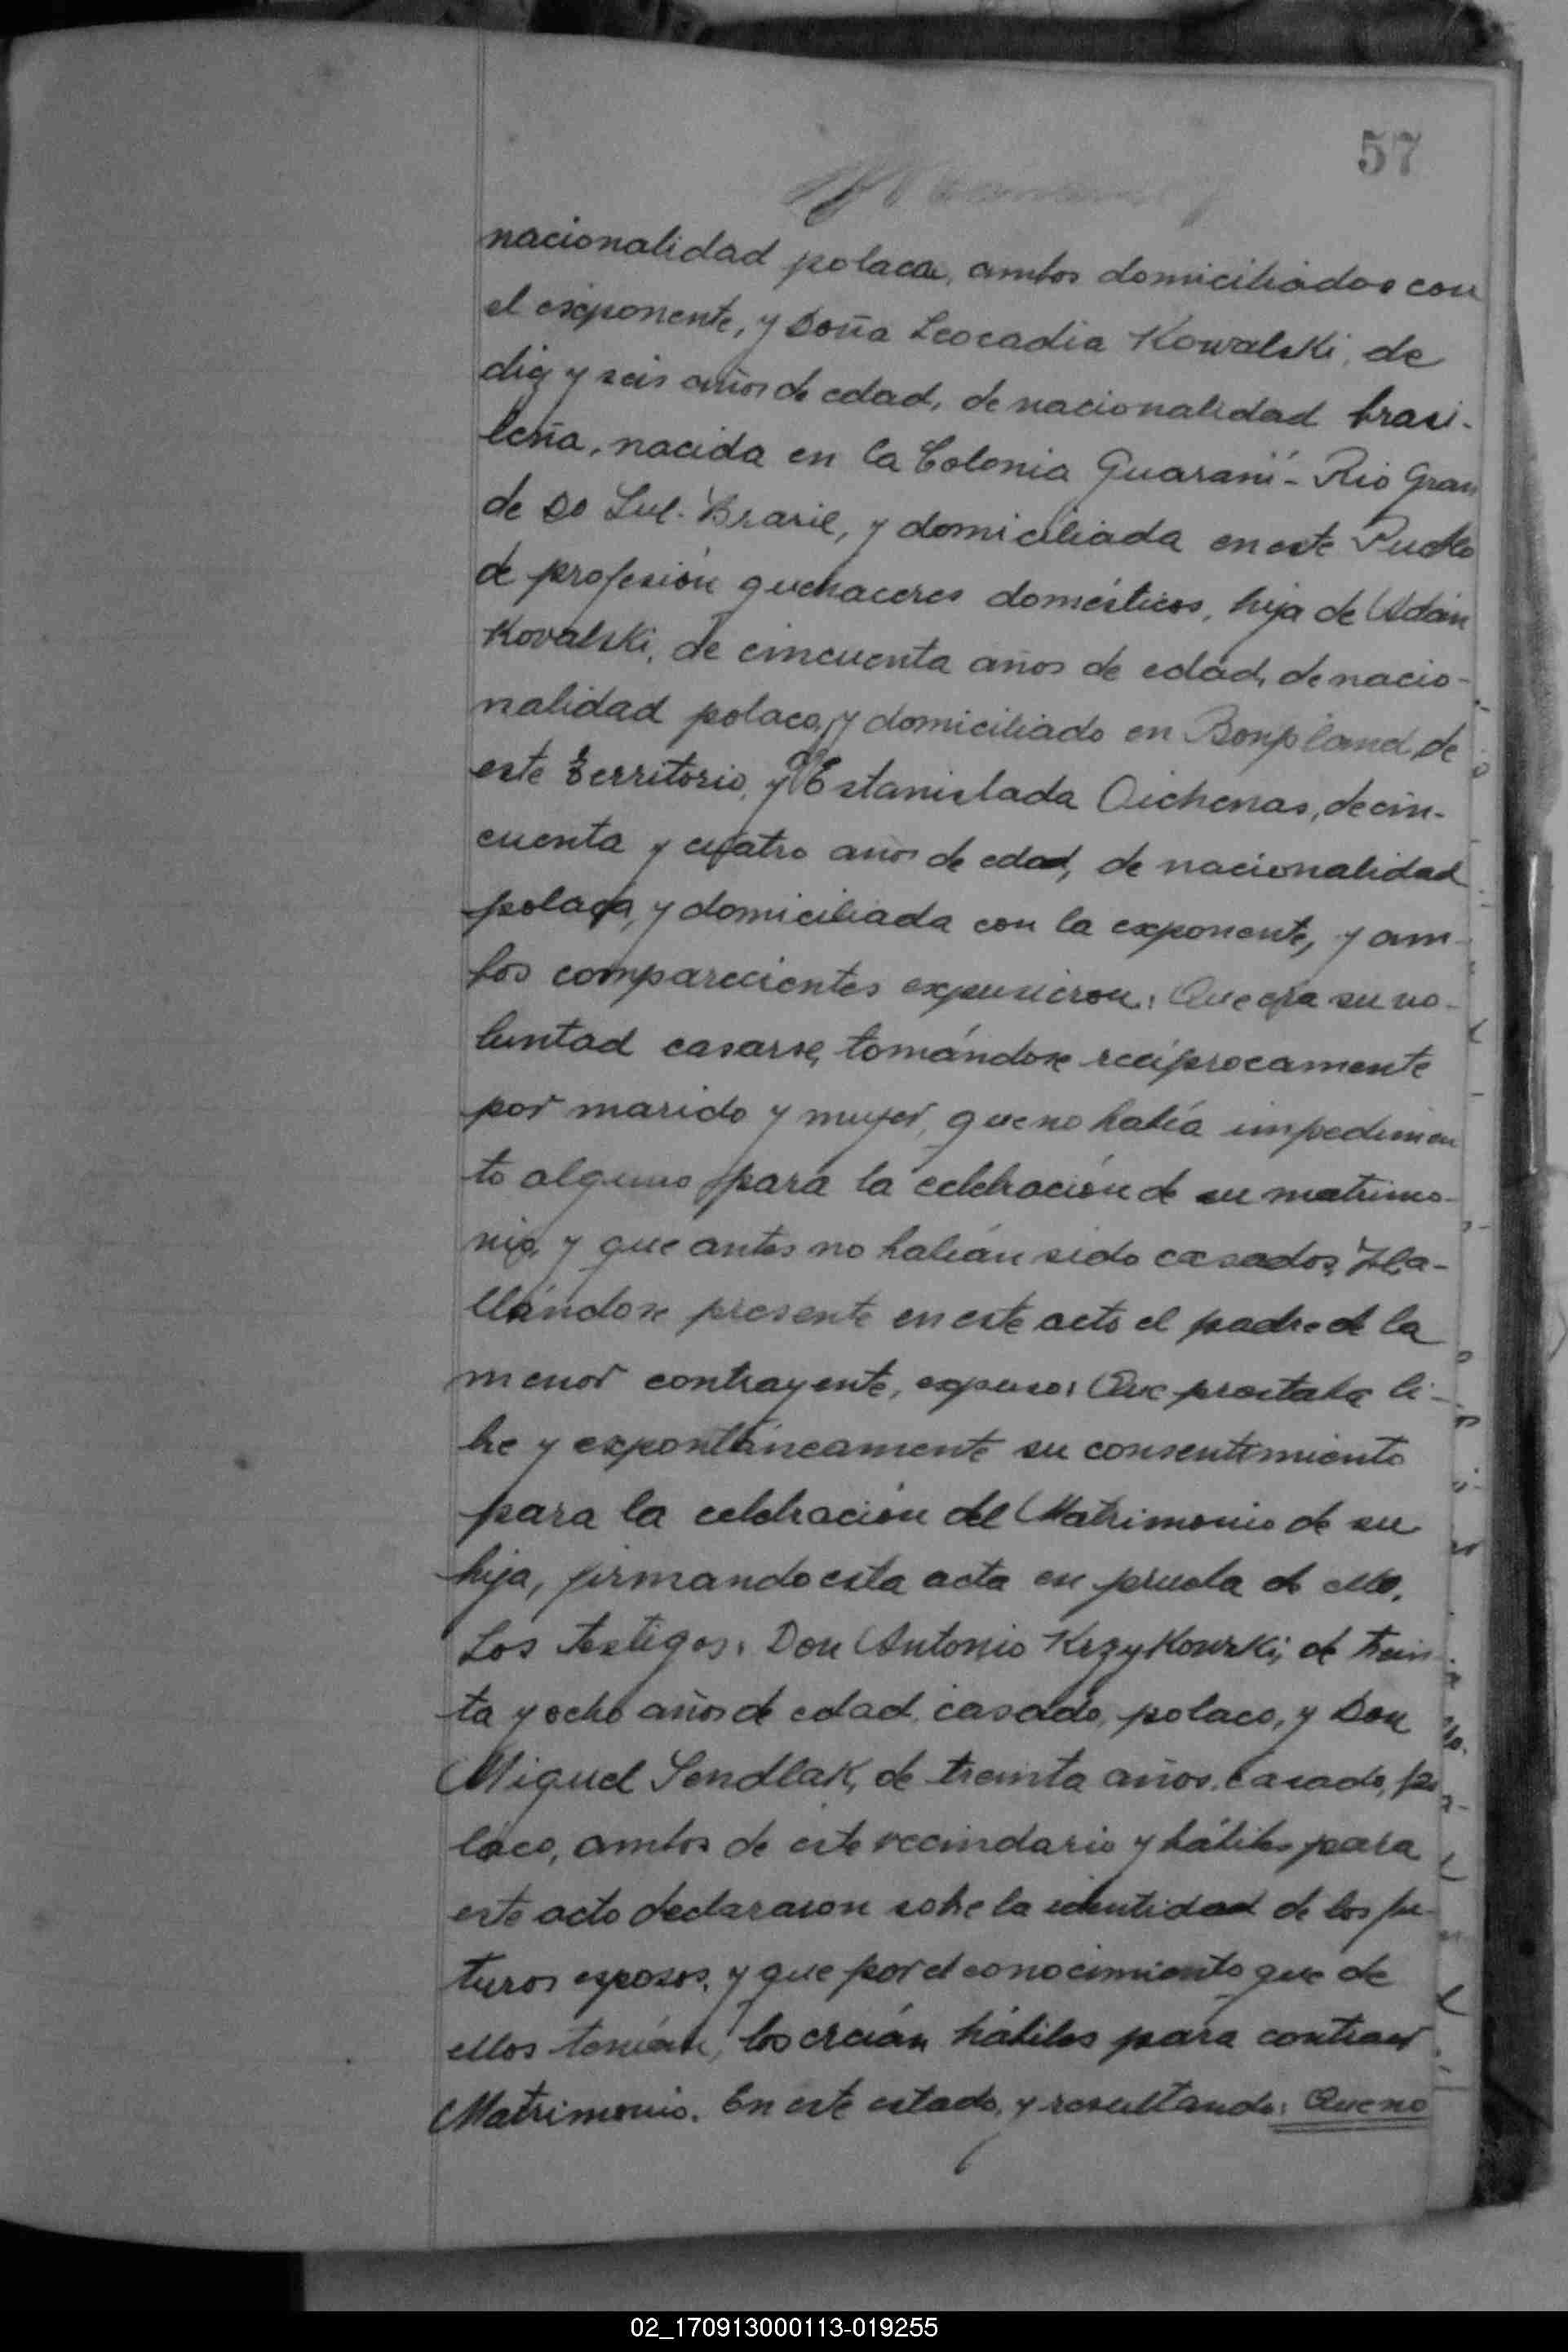 57
nacionalidad polaca, ambos domiciliados con
el exponente, y Doña Leocadia Kowalski, de
diez y seis años de edad, de nacionalidad brasi-
leña, nacida en la Colonia Guaraní - Rio Gran
de Do Sul - Brasil, y domiciliada en este Pueblo
de profesión quehaceres domésticos, hija de Adán
Kovalski, de cincuenta años de edad, de nacio-
nalidad polaco, y domiciliado en Bonpland, de
este territorio, y Estanislada Oichenas, de cin-
cuenta y cuatro años de edad, de nacionalidad
polaca, y domiciliada con la exponente, y am-
bos comparecientes expusieron: Que era su vo-
luntad casarse, tomándose recíprocamente
por marido y mujer, que no había impedimen
to alguno para la celebración de su matrimo-
nio, y que antes no habían sido casados, Ha-
llándose presente en este acto el padre de la
menor contrayente, expuso: Que prestaba li-
bre y expontáneamente su consentimiento
para la celebración del Matrimonio de su
hija, firmando esta acta en prueba de ello.
Los testigos: Don Antonio Krzykowski, de trein
ta y ocho años de edad, casado, polaco, y Don
Miguel Sendlak, de treinta años, casado, po
laco, ambos de este vecindario y hábiles para
este acto declararon sobre la identidad de los fu-
turos esposos, y que por el conocimiento que de
ellos tenían, los creían hábiles para contraer
Matrimonio. En este estado, y resultando: Que no
02_170913000113-019255